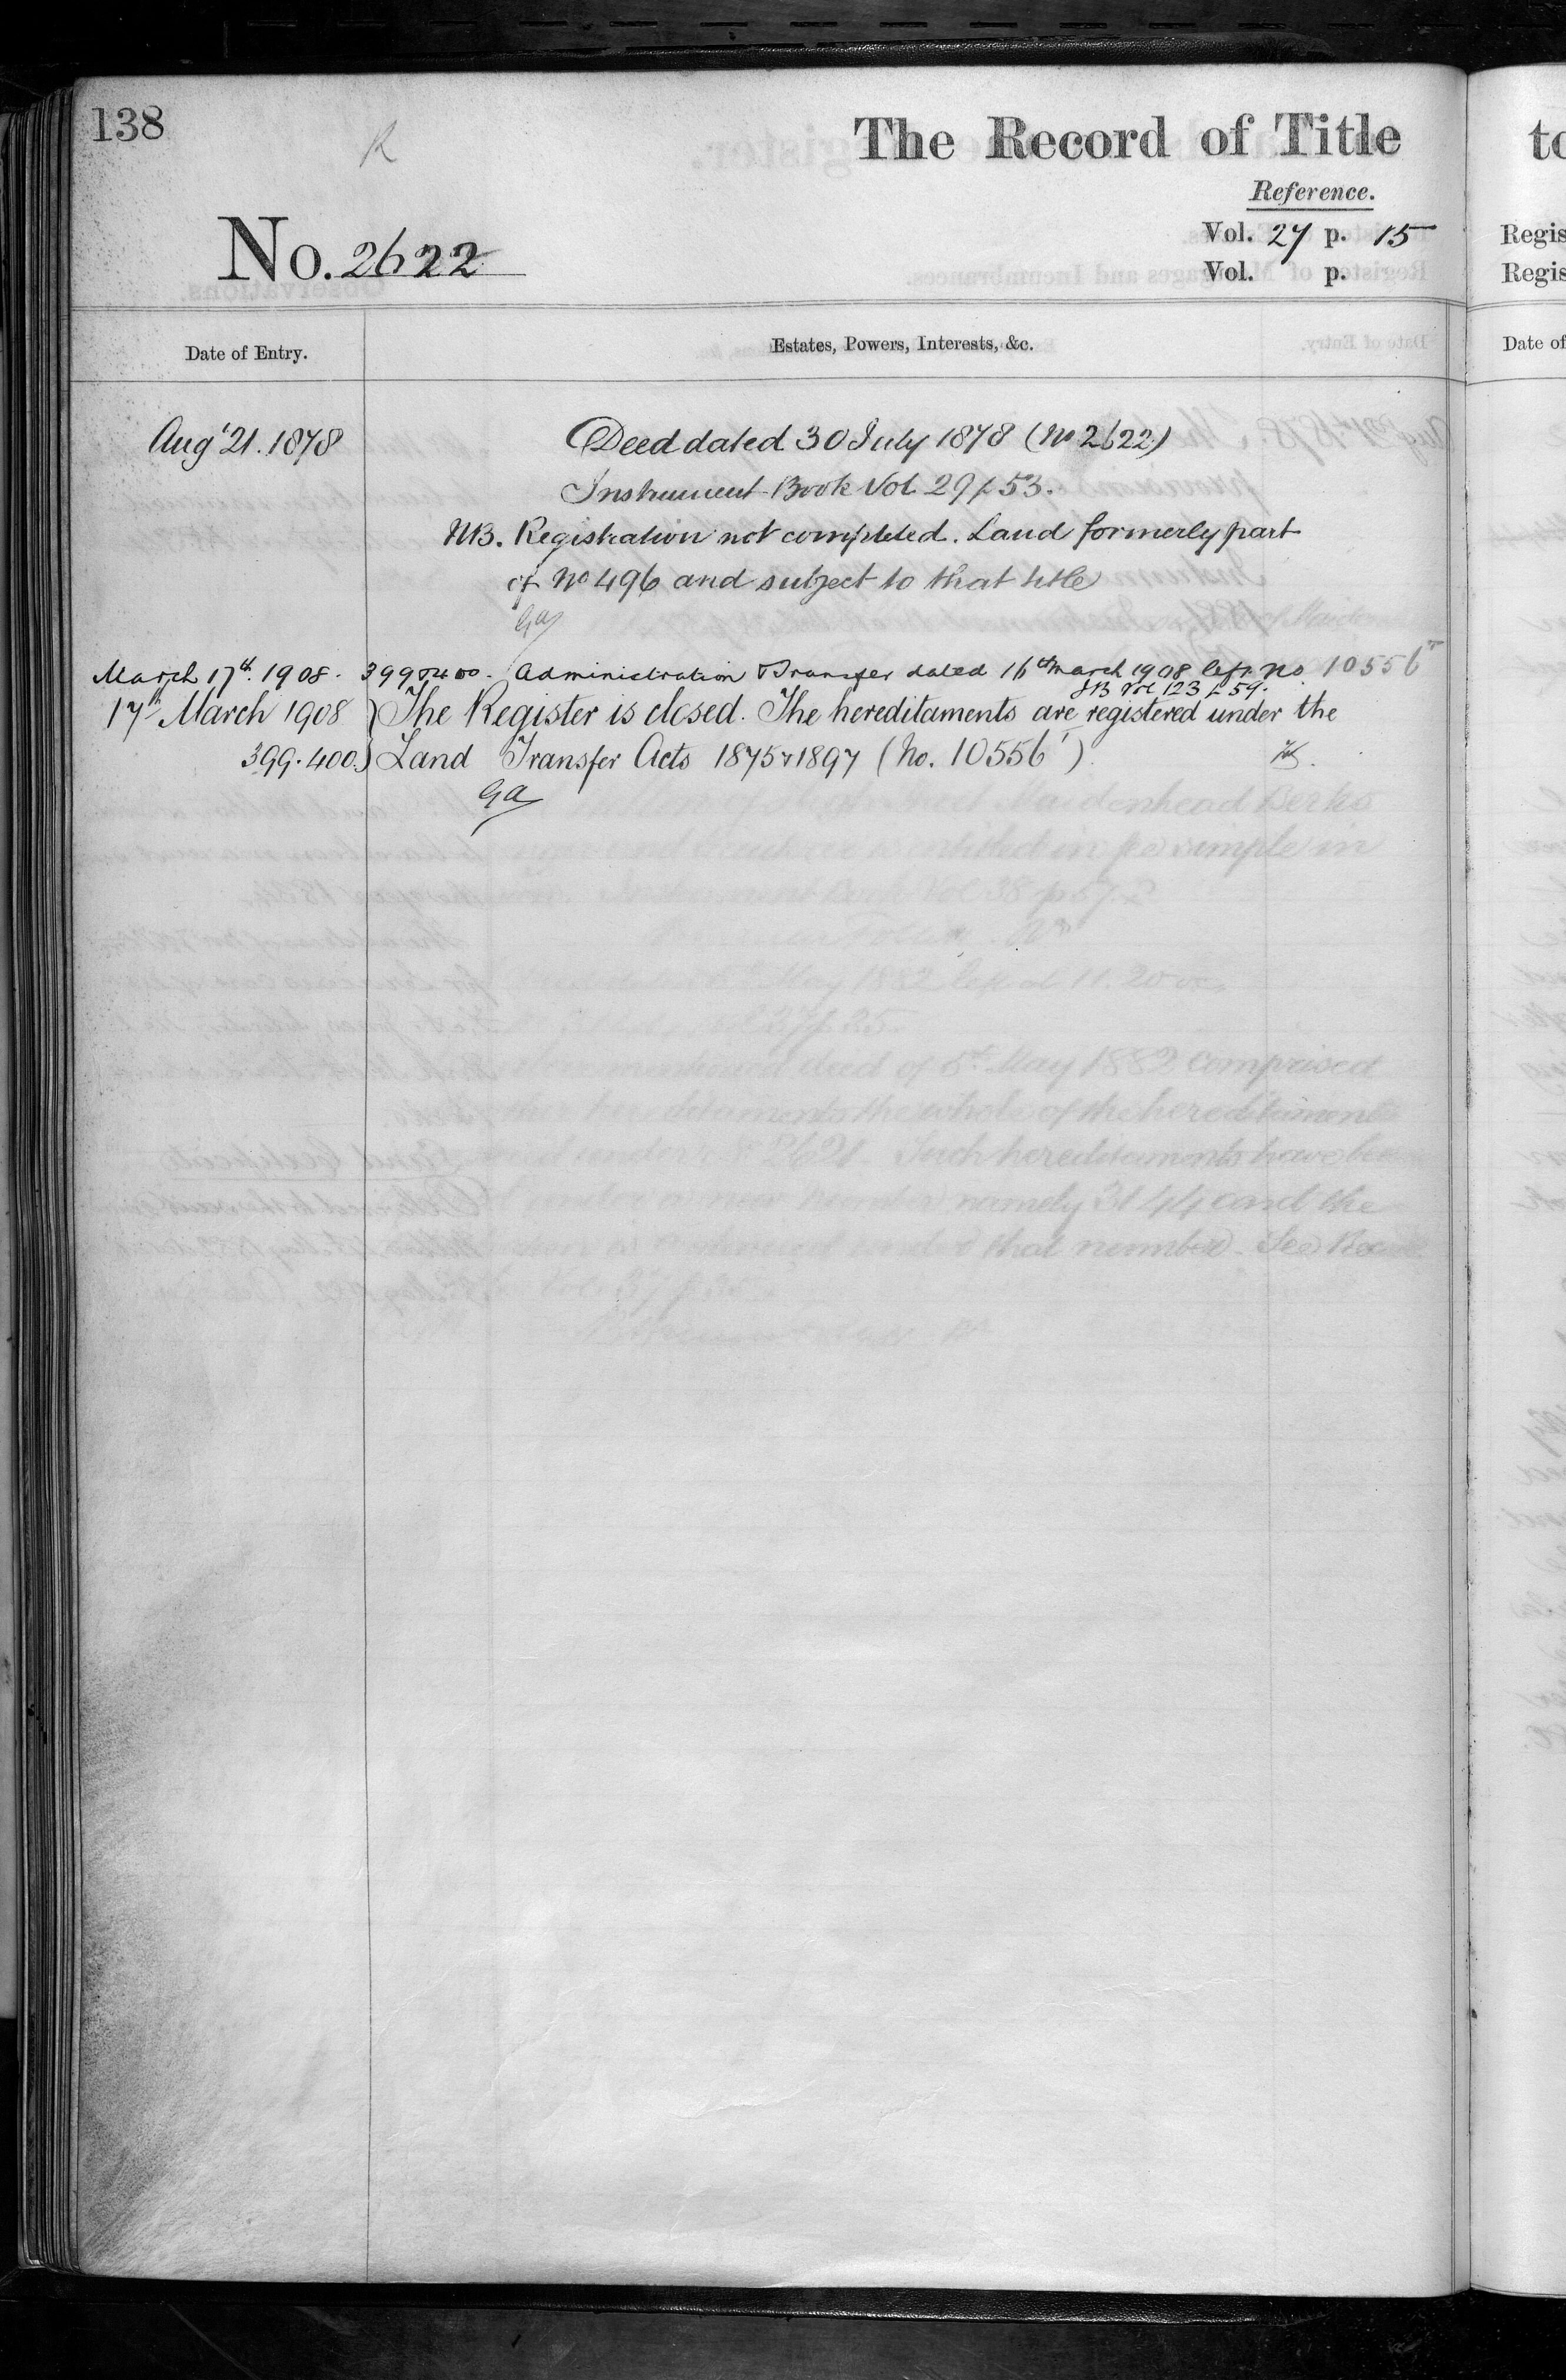 138
R
The Record of Title
to
Reference.
No. 2622
Vol. 27 p. 15
Vol. p.
Regis
Regis
Date of Entry.
Estates, Powers, Interests, &c.
Date of
Augt 21. 1878
Deed dated 30 July 1878 (No 2622)
Instrument Book Vol 29 p 53.
NB. Registration not completed. Land formerly part
of No 496 and subject to that title
Ga
March 17th. 1908. 399 & 400. Administration Transfer dated 16th March 1908 left No. 10556
IB Vol 123 p 59.
17th March 1908 The Register is closed. The hereditaments are registered under the
399.400. Land Transfer Acts 1875 & 1897 (No. 10556)
Ga